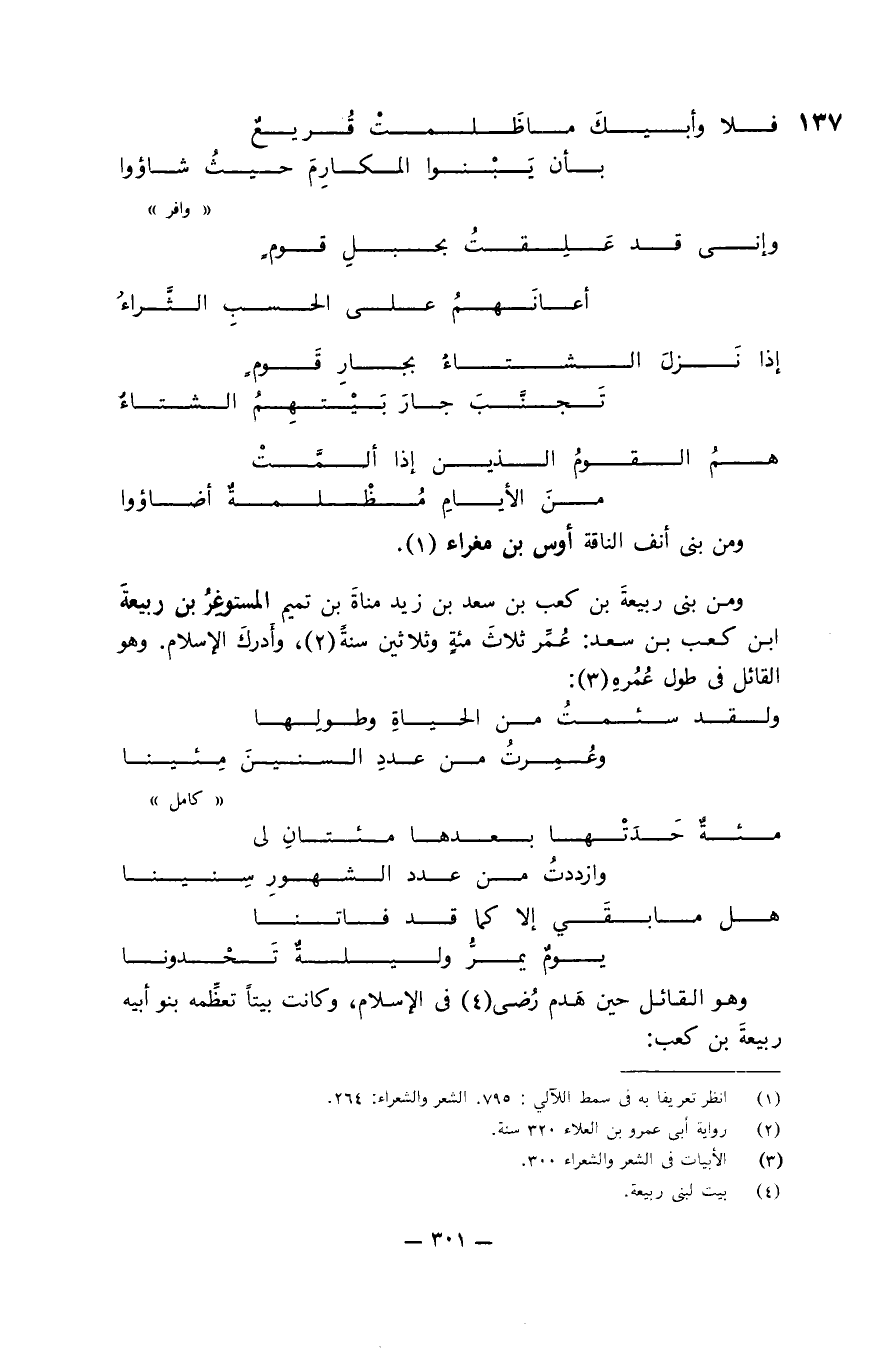 ١٣٧ فلا وأبيكَ ماظَلمتْ قُريعٌ
بأن يَبْنوا المكارِمَ حيثُ شاؤوا
« وافر »
وإنى قد عَلِقتُ بحبلِ قومٍ
أعانَهمُ على الحسبِ الثَّراءُ
إذا نَزلَ الشتاءُ بجارِ قَومٍ
تَجنَّبَ جارَ بَيْتهِمُ الشتاءُ
همُ القومُ الذين إذا ألمَّتْ
منَ الأيامِ مُظْلمةٌ أضاؤوا
ومن بنى أنف الناقة أوس بن مغراء (١).
ومن بنى ربيعةَ بن كعب بن سعد بن زيد مناةَ بن تميم المستوغِرُ بن ربيعةَ
ابن كعب بن سعد: عُمِّر ثلاثَ مئةٍ وثلاثين سنةً(٢)، وأَدركَ الإسلام. وهو
القائل فى طول عُمُرهِ(٣):
ولقد سئمتُ من الحياةِ وطولِها
وعُمِرتُ من عددِ السنينَ مِئينا
« كامل »
مئةٌ حَدَتْها بعدها مئتانِ لى
وازددتُ من عدد الشهورِ سِنينا
هل مابقَي إلا كما قد فاتنا
يومٌ يمرُّ وليلةٌ تَحْدونا
وهو القائل حين هَدم رُضى(٤) فى الإسلام، وكانت بيتاً تعظِّمه بنو أبيه
ربيعةَ بن كعب:
(١) انظر تعريفا به فى سمط اللآلي : ٧٩٥. الشعر والشعراء: ٢٦٤.
(٢) رواية أبى عمرو بن العلاء ٣٢٠ سنة.
(٣) الأبيات فى الشعر والشعراء ٣٠٠.
(٤) بيت لبنى ربيعة.
– ٣٠١ –